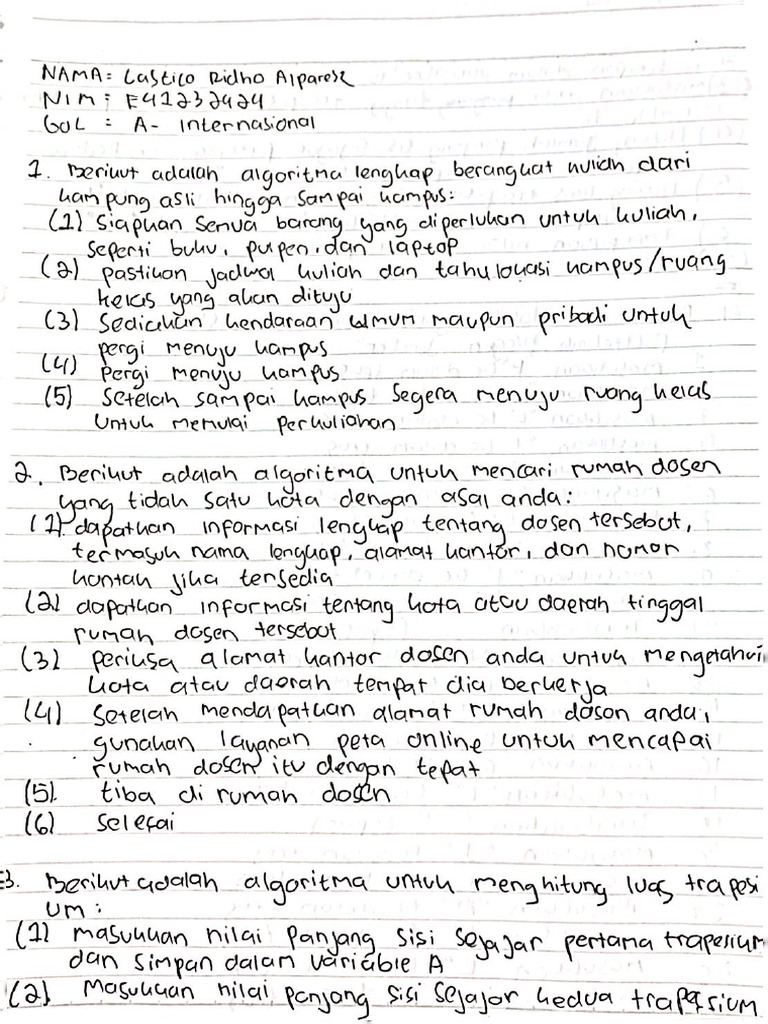 NAMA = Lastico Ridho Alparese
NIM : E41232424
GOL : A- Internasional
1. Berikut adalah algoritma lengkap berangkat kuliah dari
kampung asli hingga sampai kampus:
(1) Siapkan semua barang yang diperlukan untuk kuliah,
seperti buku, pulpen, dan laptop
(2) pastikan jadwal kuliah dan tahu lokasi kampus/ruang
kelas yang akan dituju
(3) Sediakan kendaraan umum maupun pribadi untuk
pergi menuju kampus
(4) Pergi menuju kampus
(5) Setelah sampai kampus segera menuju ruang kelas
untuk memulai perkuliahan
2. Berikut adalah algoritma untuk mencari rumah dosen
yang tidak satu kota dengan asal anda:
(1) dapatkan informasi lengkap tentang dosen tersebut,
termasuk nama lengkap, alamat kantor, dan nomor
kontak jika tersedia
(2) dapatkan informasi tentang kota atau daerah tinggal
rumah dosen tersebut
(3) periksa alamat kantor dosen anda untuk mengetahui
kota atau daerah tempat dia berkerja
(4) Setelah mendapatkan alamat rumah dosen anda,
gunakan layanan peta online untuk mencapai
rumah dosen itu dengan tepat
(5) tiba di rumah dosen
(6) Selesai
3. Berikut adalah algoritma untuk menghitung luas trapesi
um:
(1) masukkan nilai panjang sisi sejajar pertama trapesium
dan simpan dalam variable A
(2) Masukkan nilai panjang sisi sejajar kedua trapesium